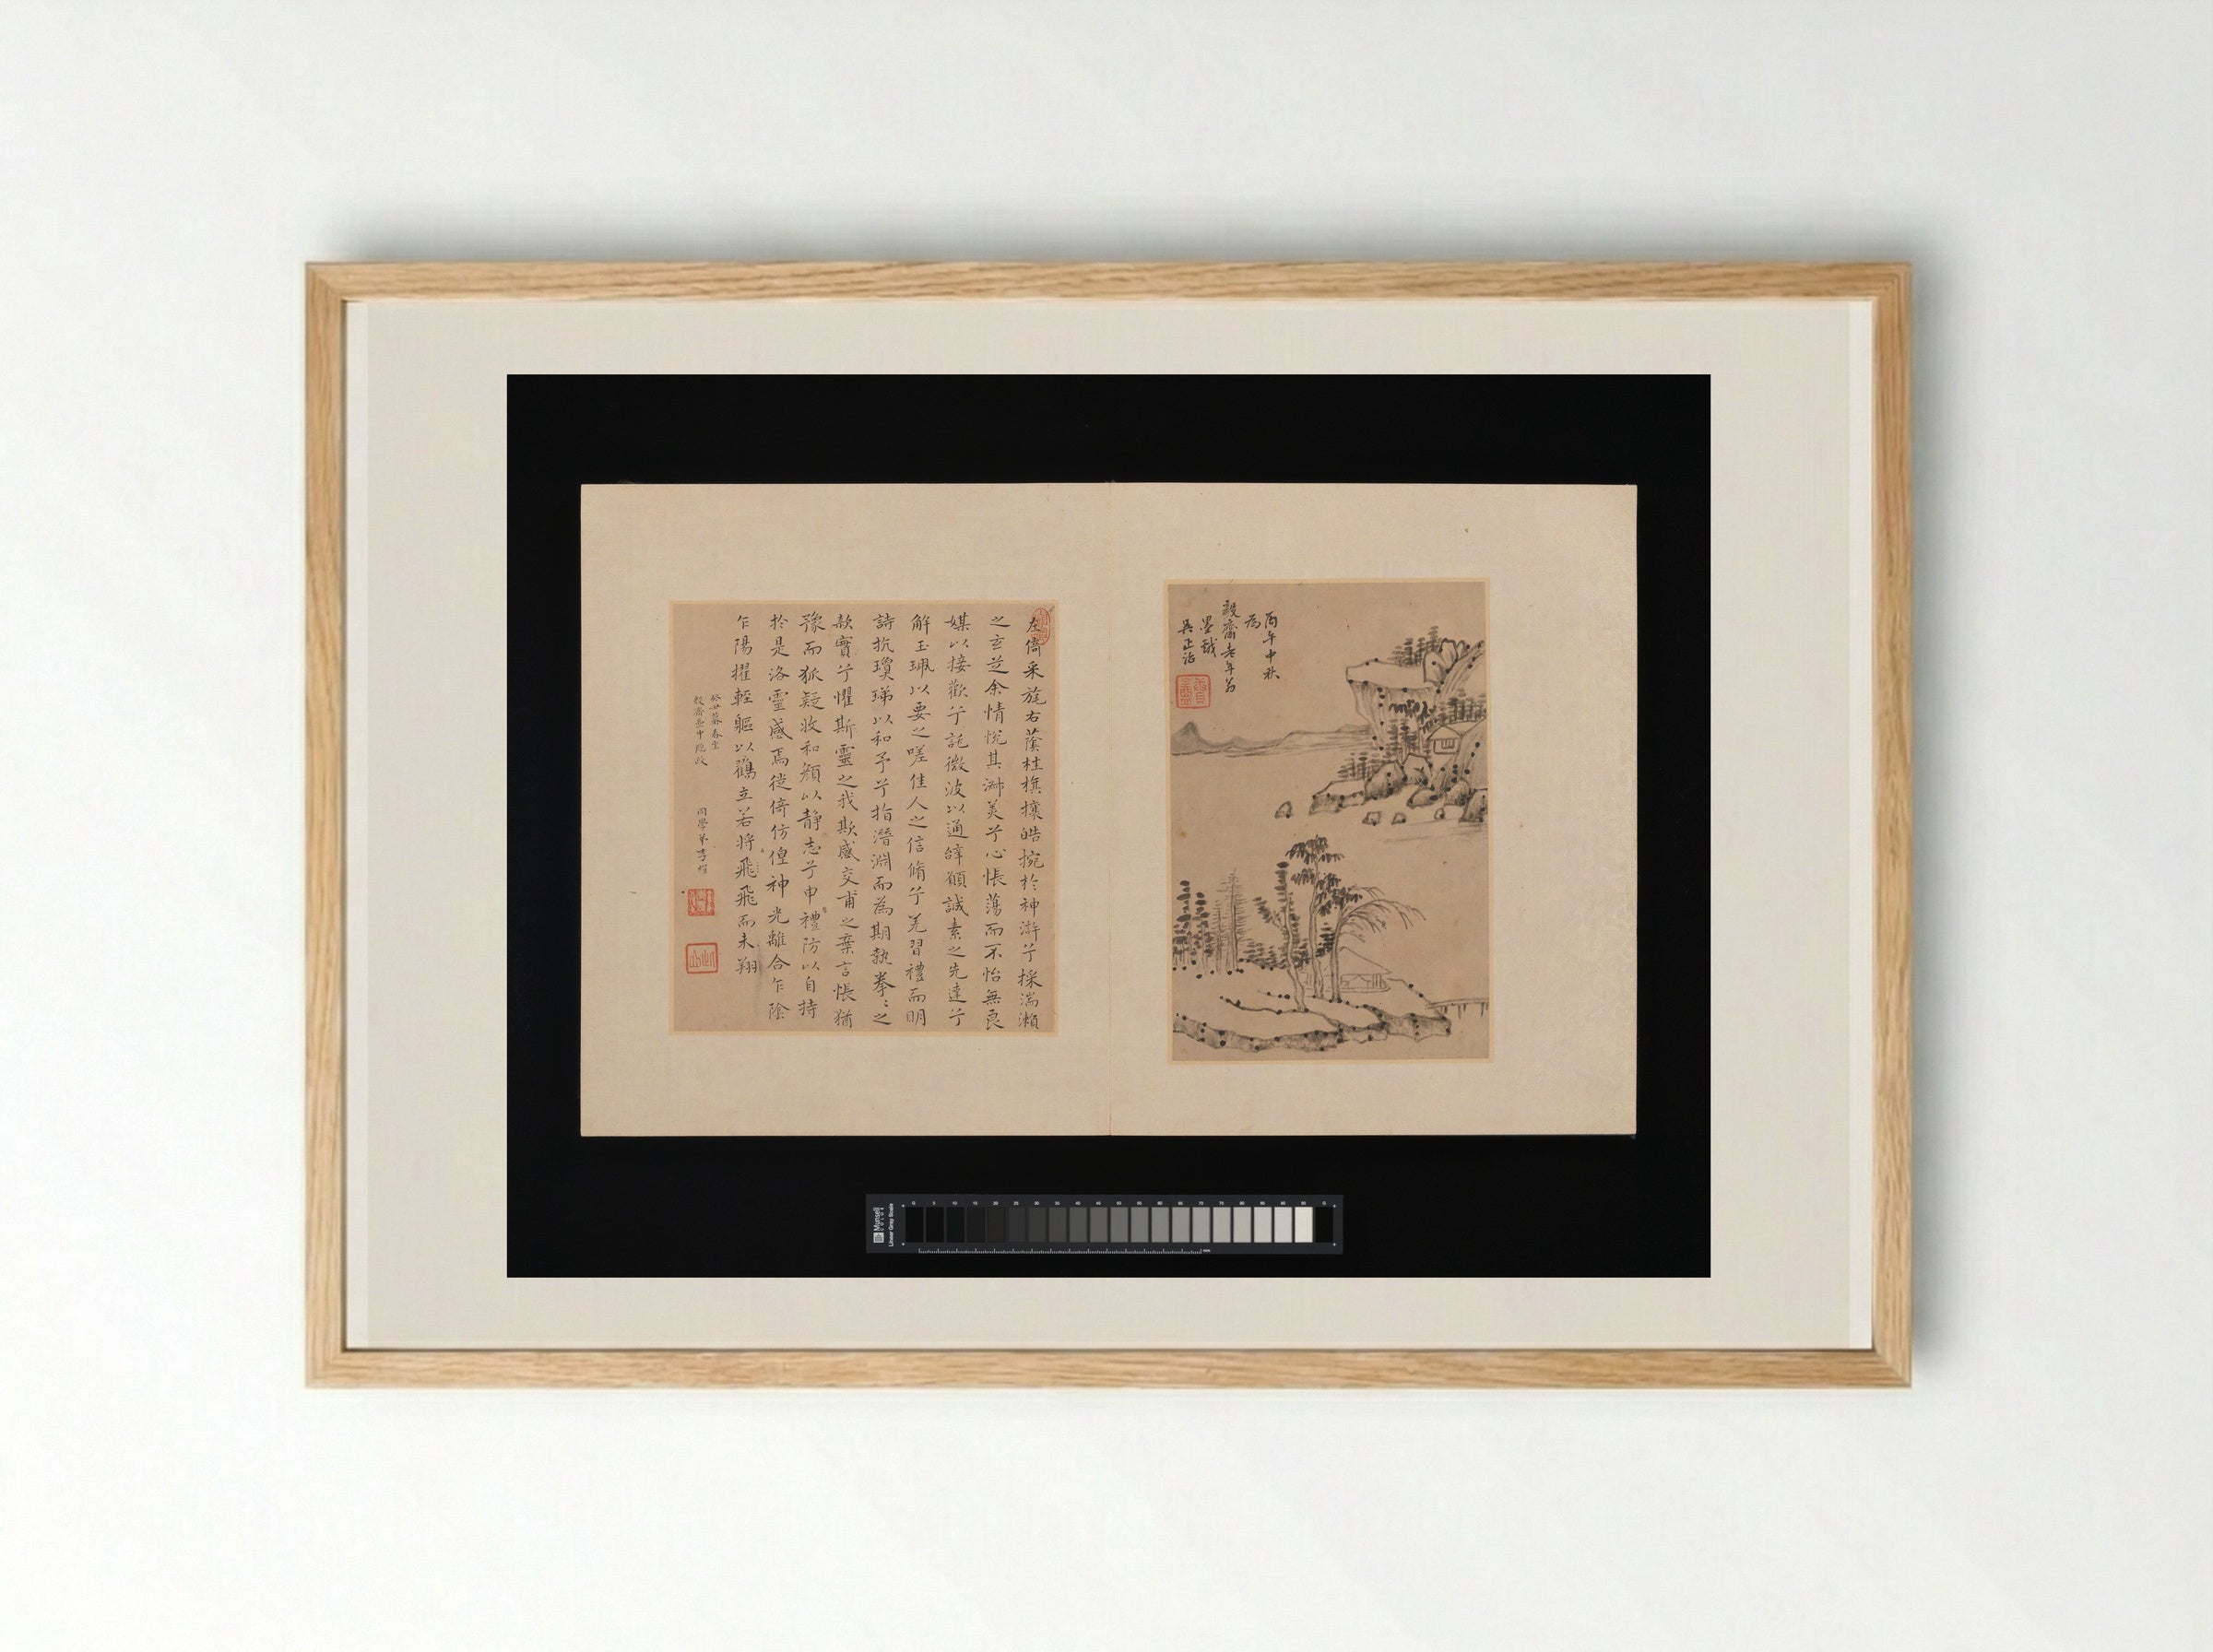 丙午中秋
為
毅齋老年翁
墨戲
吳正治
左倚采旄右蔭桂旗攘皓捥於神滸兮採湍瀨
之玄芝余情悅其淑美兮心悵蕩而不怡無良
媒以接歡兮託微波以通辭願誠素之先達兮
解玉珮以要之嗟佳人之信脩兮羌習禮而明
詩抗瓊珶以和予兮指潛淵而為期執拳〻之
款實兮懼斯靈之我欺感交甫之棄言悵猶
豫而狐疑收和顏以靜志兮申禮防以自持
於是洛靈感焉徙倚仿偟神光離合乍陰
乍陽擢輕軀以鶴立若將飛飛而未翔
同學弟李
Munsell
Linear Gray Scale
0 5 10 15 20 25 30 35 40 45 50 55 60 65 70 75 80 85 90 95 0
mm